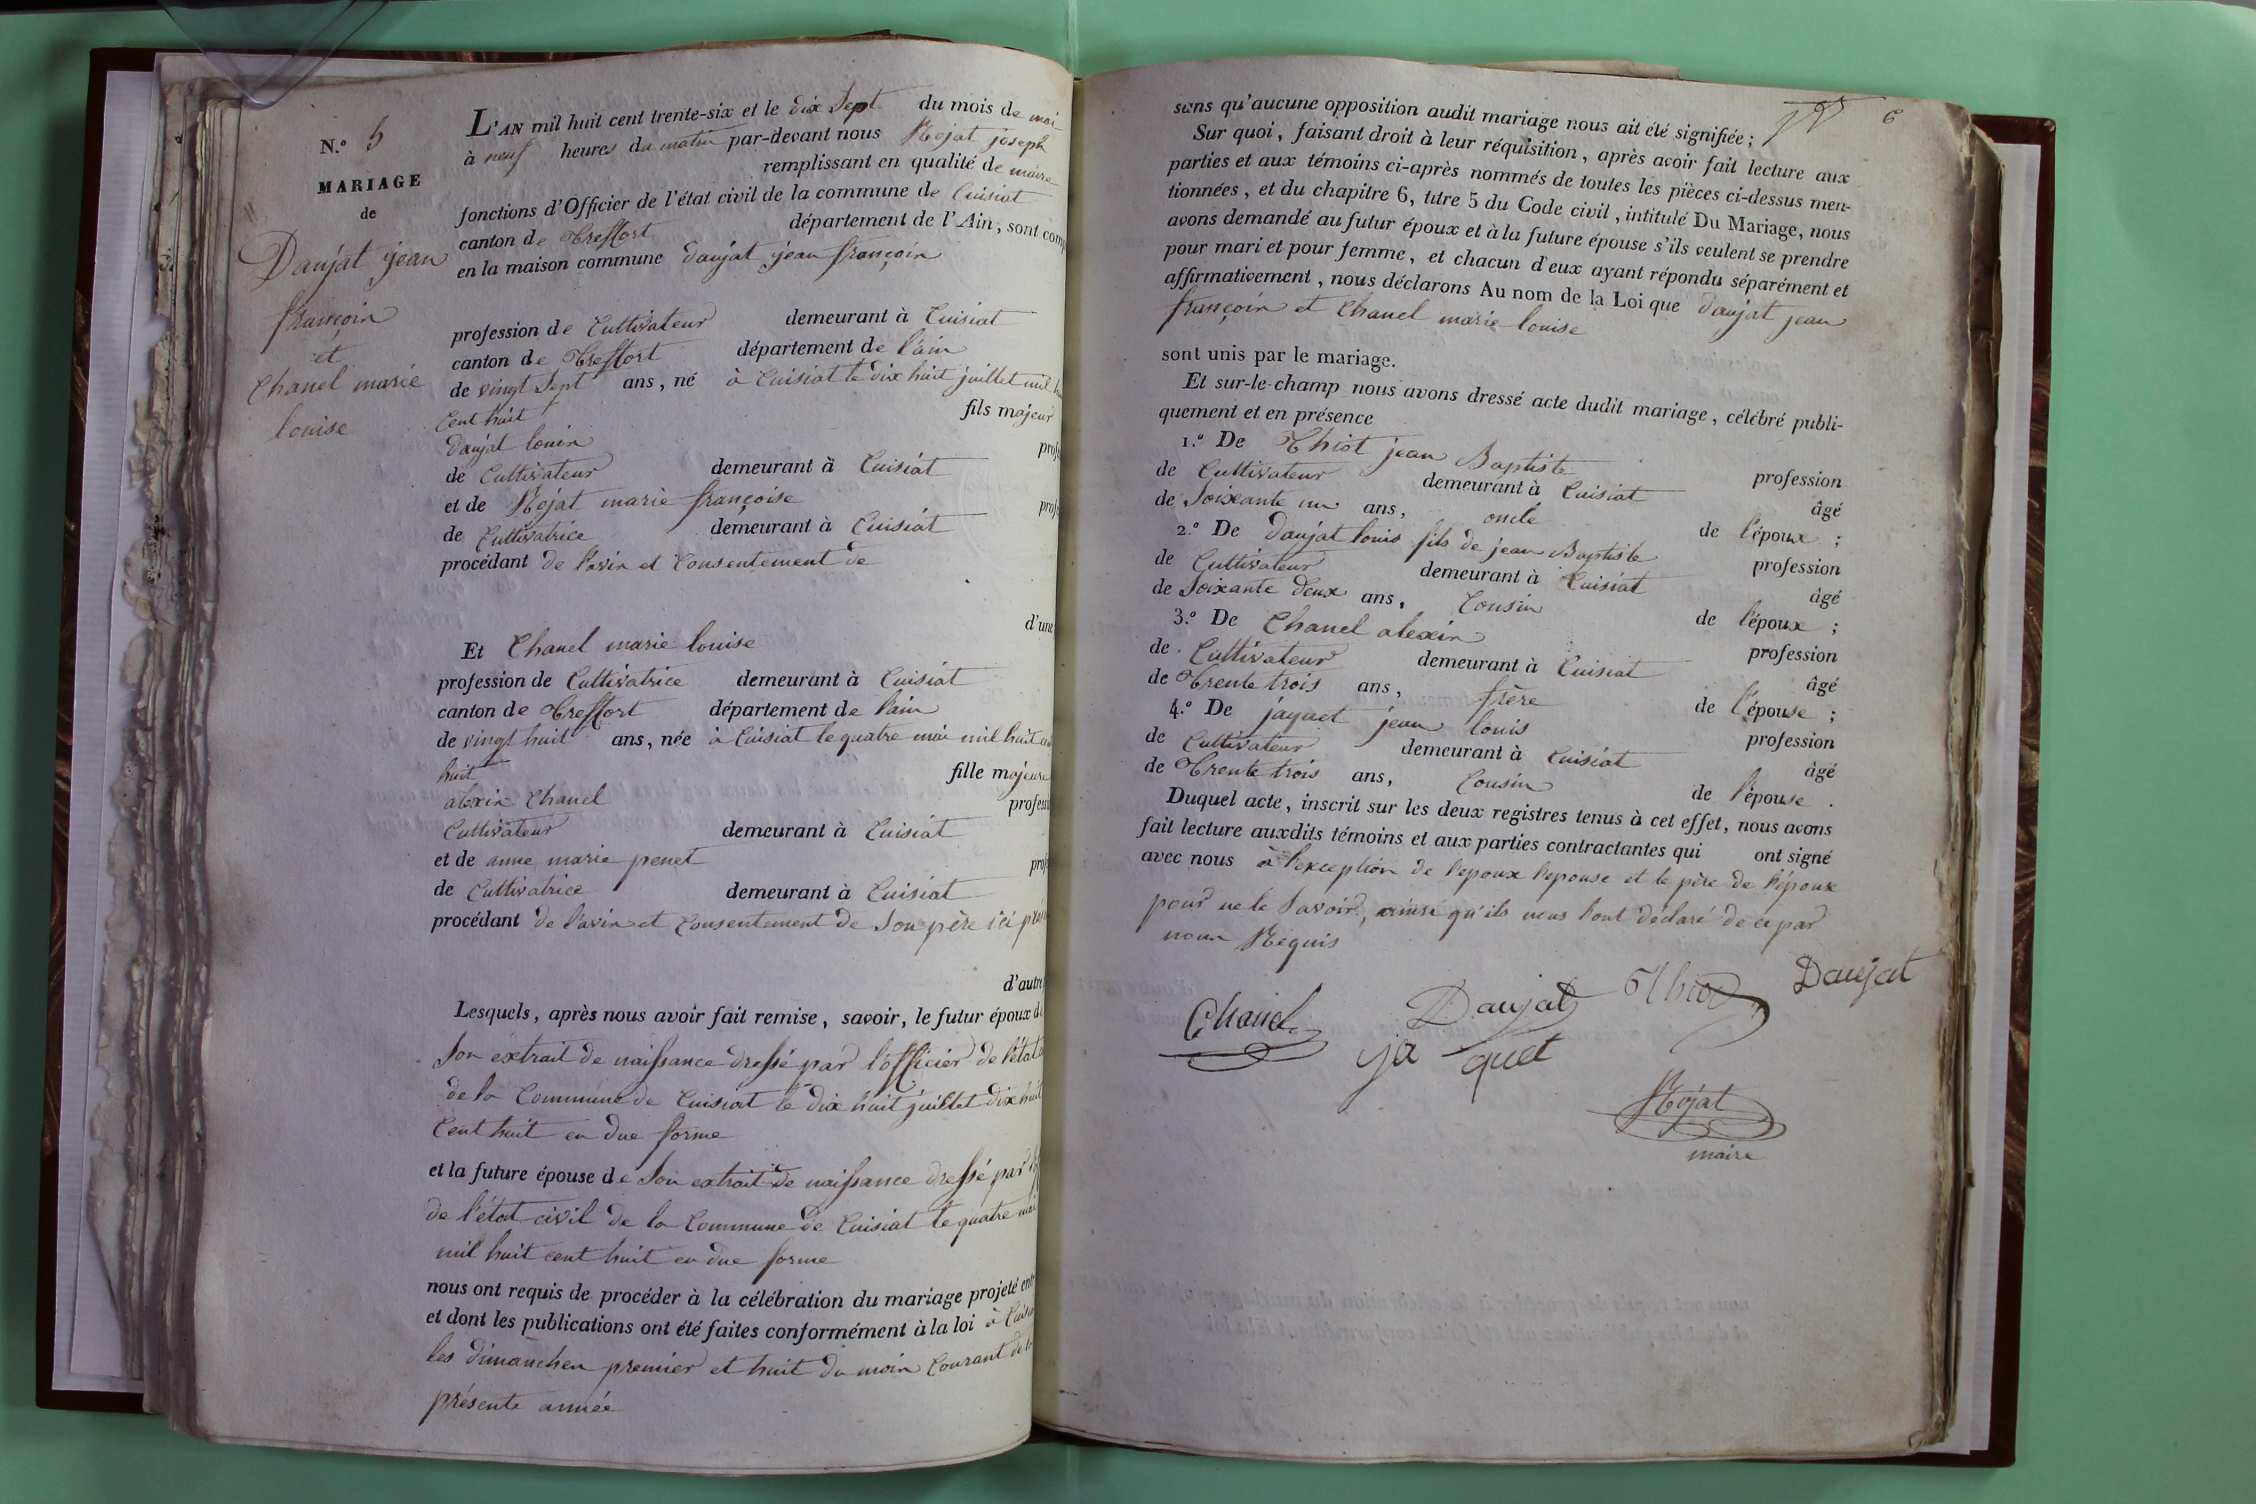 N.° 5
MARIAGE
de
Daujat jean
françois
et
Chanel marie
louise
L'AN mil huit cent trente-six et le dix Sept du mois de mai
à neuf heures du matin par-devant nous Rojat joseph
remplissant en qualité de maire
fonctions d'Officier de l'état civil de la commune de Cuisiat
canton de Treffort département de l'Ain, sont comp
en la maison commune daujat jean françois
profession de Cultivateur demeurant à Cuisiat
canton de Treffort département de l'ain
de vingt Sept ans, né à Cuisiat le dix huit juillet mil
Cent huit fils majeur
daujat louis
de Cultivateur demeurant à Cuisiat
et de Rojat marie françoise
de Cultivatrice demeurant à Cuisiat
procédant de l'avis et Consentement de
d'une
Et Chanel marie louise
profession de Cultivatrice demeurant à Cuisiat
canton de Treffort département de l'ain
de vingt huit ans, née à Cuisiat le quatre mai mil huit
huit fille majeure
alexis Chanel profess
Cultivateur demeurant à Cuisiat
et de anne marie penet
de Cultivatrice demeurant à Cuisiat
procédant de l'avis et Consentement de Son père ici
d'autre
Lesquels, après nous avoir fait remise, savoir, le futur époux d
Son extrait de naissance dressé par l'officier de l'état
de la Commune de Cuisiat le dix huit juillet dix huit
Cent huit en due forme
et la future épouse de Son extrait de naissance dressé par
de l'état civil de la Commune de Cuisiat le quatre mai
mil huit cent huit en due forme
nous ont requis de procéder à la célébration du mariage projeté ent
et dont les publications ont été faites conformément à la loi à
les dimanches premier et huit du mois Courant de la
présente année
6
sans qu'aucune opposition audit mariage nous ait été signifiée;
Sur quoi, faisant droit à leur réquisition, après avoir fait lecture aux
parties et aux témoins ci-après nommés de toutes les pièces ci-dessus men-
tionnées, et du chapitre 6, titre 5 du Code civil, intitulé Du Mariage, nous
avons demandé au futur époux et à la future épouse s'ils veulent se prendre
pour mari et pour femme, et chacun d'eux ayant répondu séparément et
affirmativement, nous déclarons Au nom de la Loi que daujat jean
françois et Chanel marie louise
sont unis par le mariage.
Et sur-le-champ nous avons dressé acte dudit mariage, célébré publi-
quement et en présence
1.° De Thiot jean Baptiste profession
de Cultivateur demeurant à Cuisiat âgé
de Soixante un ans, oncle de l'époux ;
2.° De daujat louis fils de jean Baptiste profession
de Cultivateur demeurant à Cuisiat âgé
de Soixante deux ans, Cousin de l'époux ;
3.° De Chanel alexis profession
de Cultivateur demeurant à Cuisiat âgé
de Trente trois ans, frère de l'épouse ;
4.° De jaquet jean louis profession
de Cultivateur demeurant à Cuisiat âgé
de Trente trois ans, Cousin de l'épouse .
Duquel acte, inscrit sur les deux registres tenus à cet effet, nous avons
fait lecture auxdits témoins et aux parties contractantes qui ont signé
avec nous à l'exception de l'epoux l'epouse et le père de l'époux
pour ne le Savoir, ainsi qu'ils nous l'ont déclaré de ce par
nous Requis
Chanel Daujat Thiot Daujat
ja quet
Rojat
maire